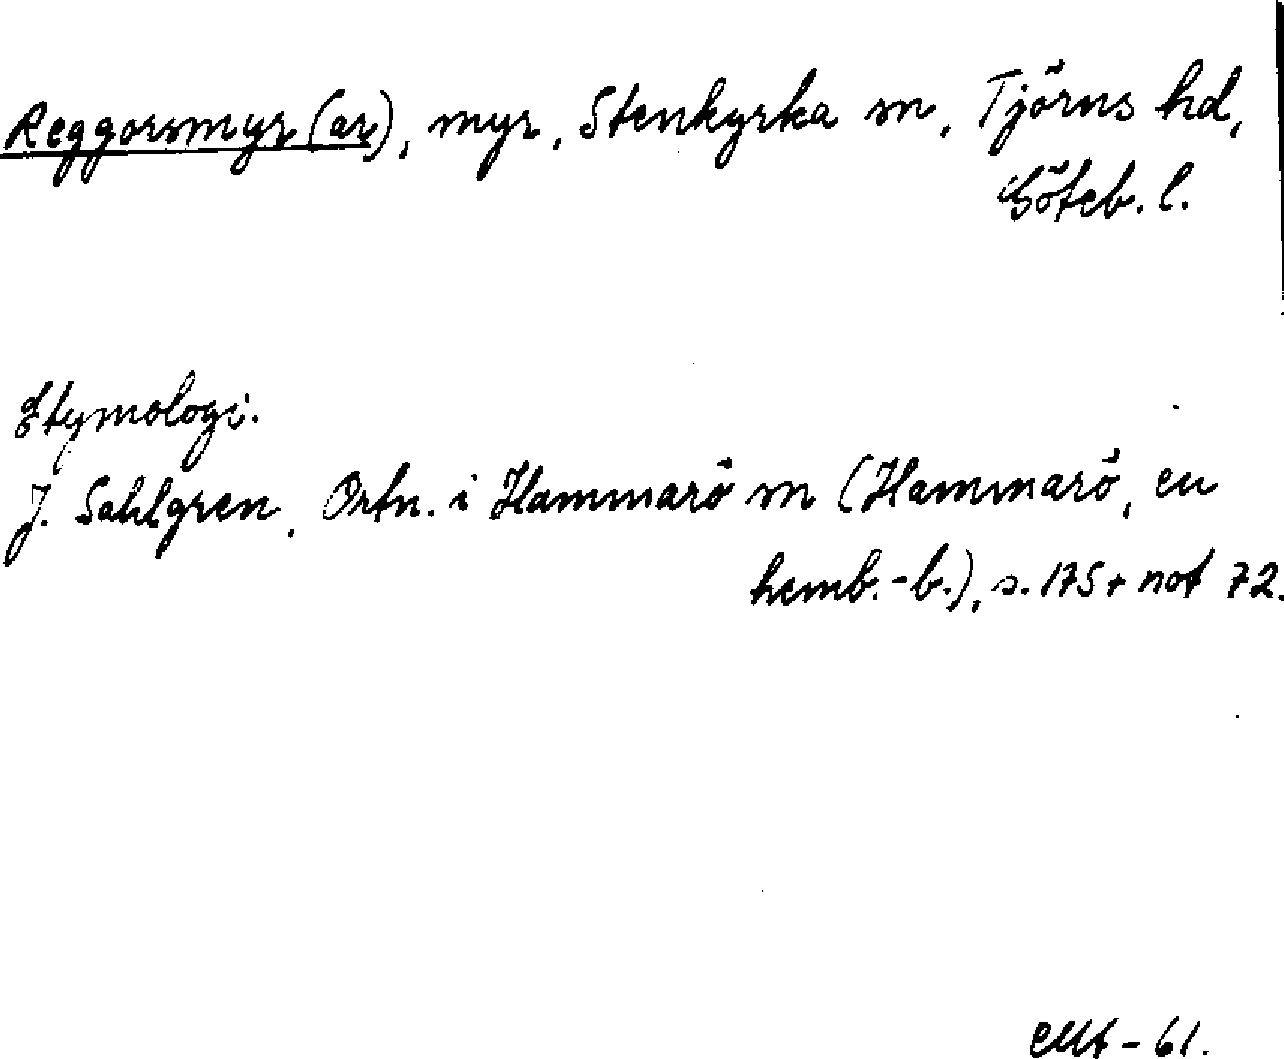 Reggorsmyr(ar), myr, Stenkyrka sn, Tjörns hd,
Göteb. l.
Etymologi.
J. Sahlgren, Ortn. i Hammarö sn (Hammarö, en
hemb.-b.), s. 175 + not 72.
-61.